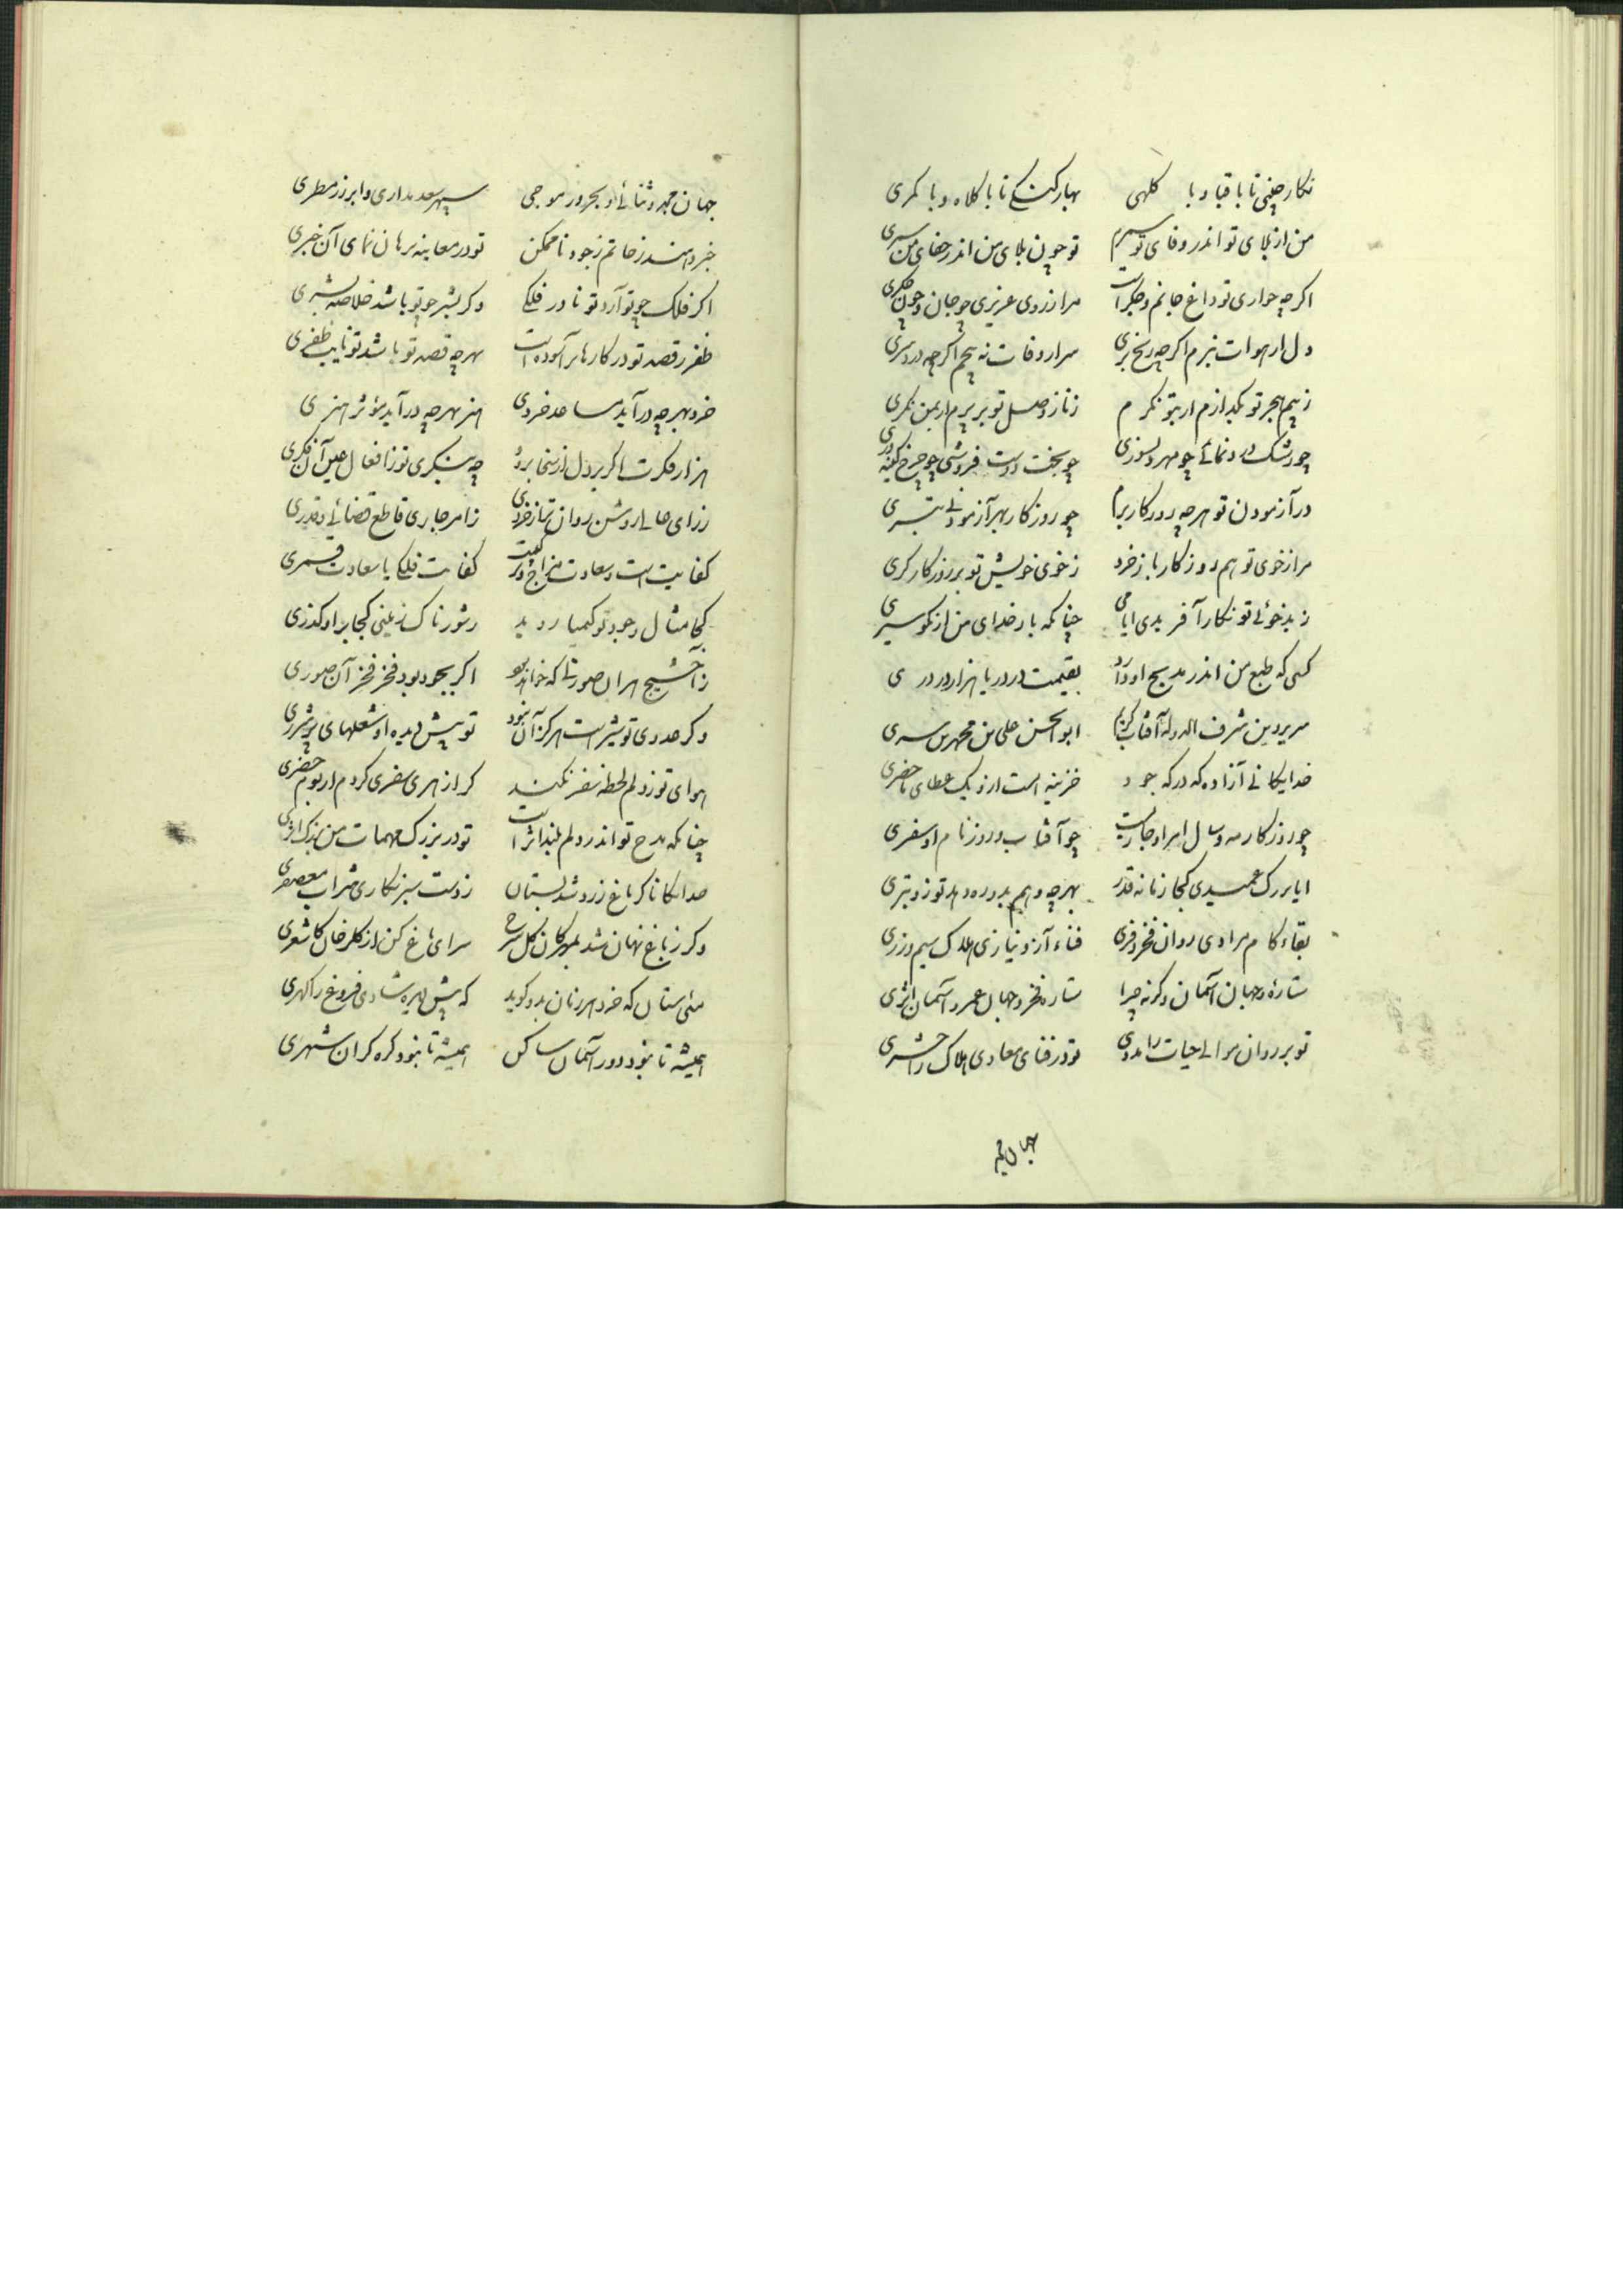 نکار چینی تا با قبا و با کلهی بهار کشی تا با کلاه و با کمری
من از بلای تو اندر وفای تو سپرم تو چون بلای من اندر جفای من سپری
اکر چه خواری تو داغ جانم و جکر است مرا ز روی عزیزی چو جان و چون جکری
دل از هوات نبرم اکر چه رنج بری سر از وفات نه پیچم اکر چه درد سری
ز بیم هجر تو بکدازم ار بتو نکرم ز ناز وصل تو بر پرم ار بمن نکری
چو رشک رو نمائی چو مهر دلسوزی چو بخت دوست فروشی چو چرخ کینه وری
در آزمودن تو هر چه روزکار برم چو روزکار بهر آزمودنی بتری
مرا ز خوی تو هم روزکار باز خرد ز خوی خویش تو بر روزکار کری
ز بدخوئی تو نکار آفریدی ایامی چنانکه بار خدای من از نکو سیری
کسی که طبع من اندر مدیح او دارد بقیمت در دریا هزار در دری
سر یر دین شرف الدوله آفتاب کرام ابوالحسن علی بن محمد بن سری
خدایکانی آزاده که در که جود خزینه است از و یک عطای ما حضری
چو روزکار مه و سال امر او جاریست چو آفتاب و روز نام او سفری
ایا بزرک عمیدی کجا زمانه قدر بهر چه وهم بدو ره دهد تو زو بتری
بقاء کام مرادی روان فخر و فری فناء آز و نیازی هلاک سیم و زری
ستارهٔ و جهان آسمان و کرنه چرا ستاره فخر و جهان عمر و آسمان اثری
تو بر روان موالی حیات را مددی تو در فنای معادی هلاک را حشری
جهان مجد
جهان مجد و ثنائی و بحر در موجی سپهر سعد مداری و ابر زر مطری
خبر دهند ز حاتم ز جود ناممکن تو در معاینه برهان نمای آن خبری
اکر فلک چو تو آرد تو نادر فلکی و کر بشر چو تو باشد خلاصه بشری
ظفر ز قصد تو در کارها بر آسوده است بهر چه قصد تو باشد تو نایب ظفری
خرد بهر چه در آید مساعد خردی هنر بهر چه در آید مؤثر هنری
هزار فکرت اکر بر دل از سخا برد چه بنکری تو ز افعال عین آن فکری
ز رای عالی روشن روان تر از خردی ز امر جاری قاطع قضائی و قدری
کفایت است و سعادت مزاج و کفایت فلکی یا سعادت قمری
کجا مثال وجود تو کیمیا روید ز شوره ناک زمینی کجا بر او کذری
ز آخشیج هر آن صورتی که خواهد بود اکر بجود بود فخر فخر آن صوری
و کر عدوی تو شیر است هرکز آن نبود تو پیش دیده او شعلهای پر شرری
هوای تو ز دلم لحظه سفر نکند کر از هری سفری کردم ار بوم حضری
چنانکه مدح تو اندر دلم بلند اثر است تو در بزرک مهمات من بزرک اثری
خدایکانا کر باغ زرد شد بستان ز دست سبز نکاری شراب معصفری
و کر ز باغ نهان شد بمهرکان کل سرخ سرای باغ کن از کلرخان کاشغری
مئی ستان که خرد هر زمان بدو کوید که پیش بهره شادی فروغ را کهری
همیشه تا نبود دور آسمان ساکن همیشه تا نبود کره کران شهری